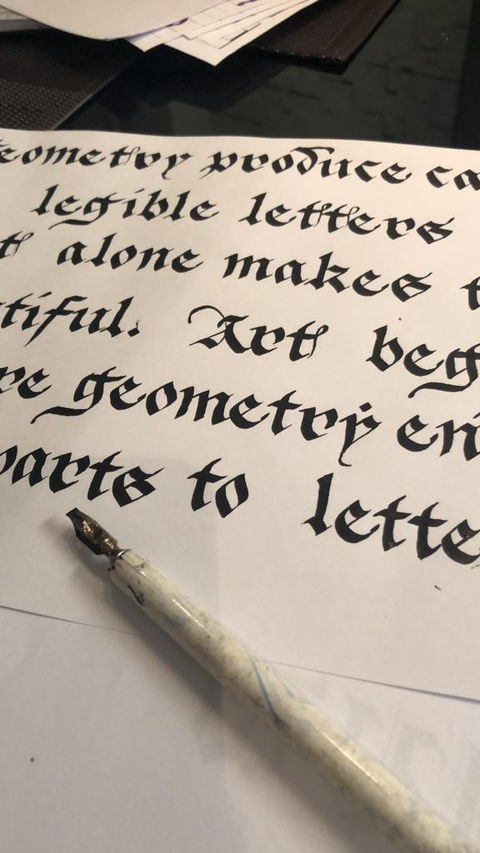 eometry produce ca
legible letters
t alone makes t
tiful. Art beg
re geometry en
parts to lette